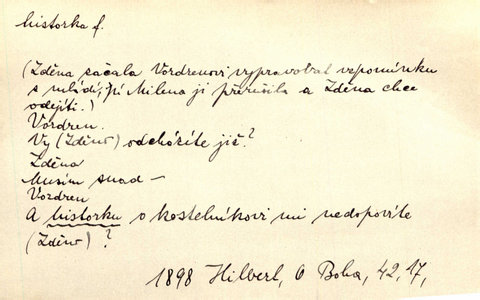 historka f.
(Zděna začala Vordrenovi vypravovat vzpomínku
z mládí, Milena ji přerušila a Zděna chce
odejíti.)
Vordren.
Vy (Zděno) odcházíte již?
Zděna
Musím snad —
Vordren
A historku o kostelníkovi mi nedopovíte
(Zděno)?
1898 Hilbert, O Boha, 42, 17,